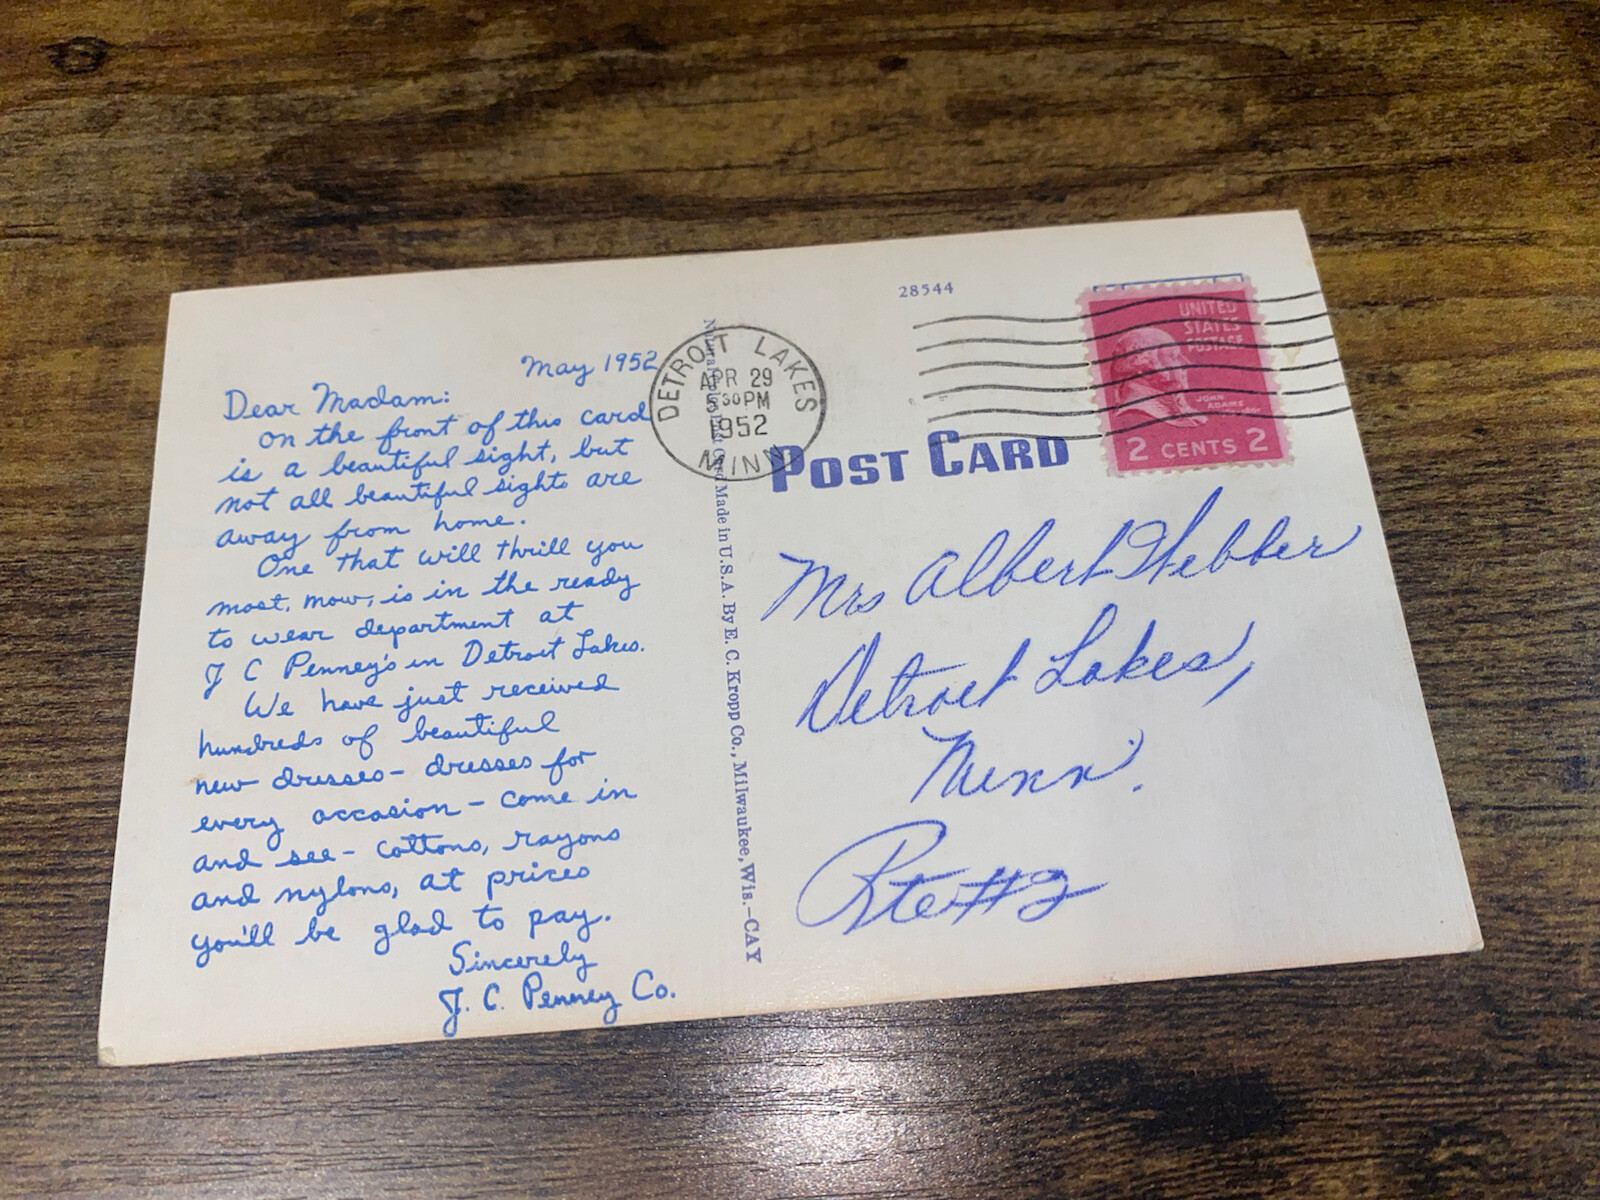 May 1952
Dear Madam:
On the front of this card
is a beautiful sight, but
not all beautiful sights are
away from home.
One that will thrill you
most, now, is in the ready
to wear department at
J C Penney's in Detroit Lakes.
We have just received
hundreds of beautiful
new dresses - dresses for
every occasion - come in
and see - cottons, rayons
and nylons, at prices
you'll be glad to pay.
Sincerely
J. C. Penney Co.
Made in U.S.A. By E. C. Kropp Co., Milwaukee, Wis.-CAY
DETROIT LAKES
APR 29
5 30 PM
1952
MINN
28544
UNITED
STATES
POSTAGE
JOHN
ADAMS
2 CENTS 2
POST CARD
Mrs Albert Webber
Detroit Lakes,
Minn.
Rte #2